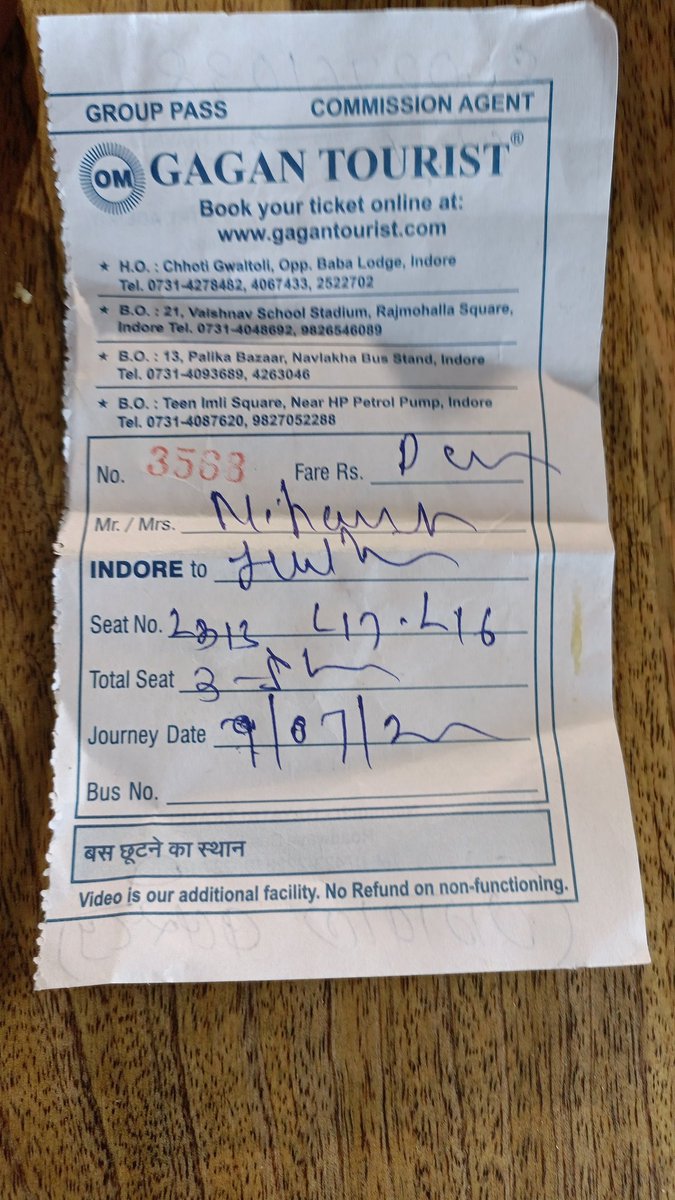 GROUP PASS COMMISSION AGENT
OM GAGAN TOURIST®
Book your ticket online at:
www.gagantourist.com
★ H.O. : Chhoti Gwaltoli, Opp. Baba Lodge, Indore
Tel. 0731-4278482, 4067433, 2522702
★ B.O. : 21, Vaishnav School Stadium, Rajmohalla Square,
Indore Tel. 0731-4048692, 9826546089
★ B.O. : 13, Palika Bazaar, Navlakha Bus Stand, Indore
Tel. 0731-4093689, 4263046
★ B.O. : Teen Imli Square, Near HP Petrol Pump, Indore
Tel. 0731-4087620, 9827052288
No. 3563 Fare Rs.
Mr. / Mrs.
INDORE to
Seat No. L17. L16
Total Seat 3
Journey Date 9/07/2
Bus No.
बस छूटने का स्थान
Video is our additional facility. No Refund on non-functioning.